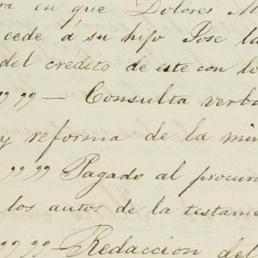 en que Dolores M
cede á su hijo José la
del crédito de este con lo
" " " — Consulta verb
y reforma de la min
" " " Pagado al procura
los autos de la testame
" " " — Redaccion del